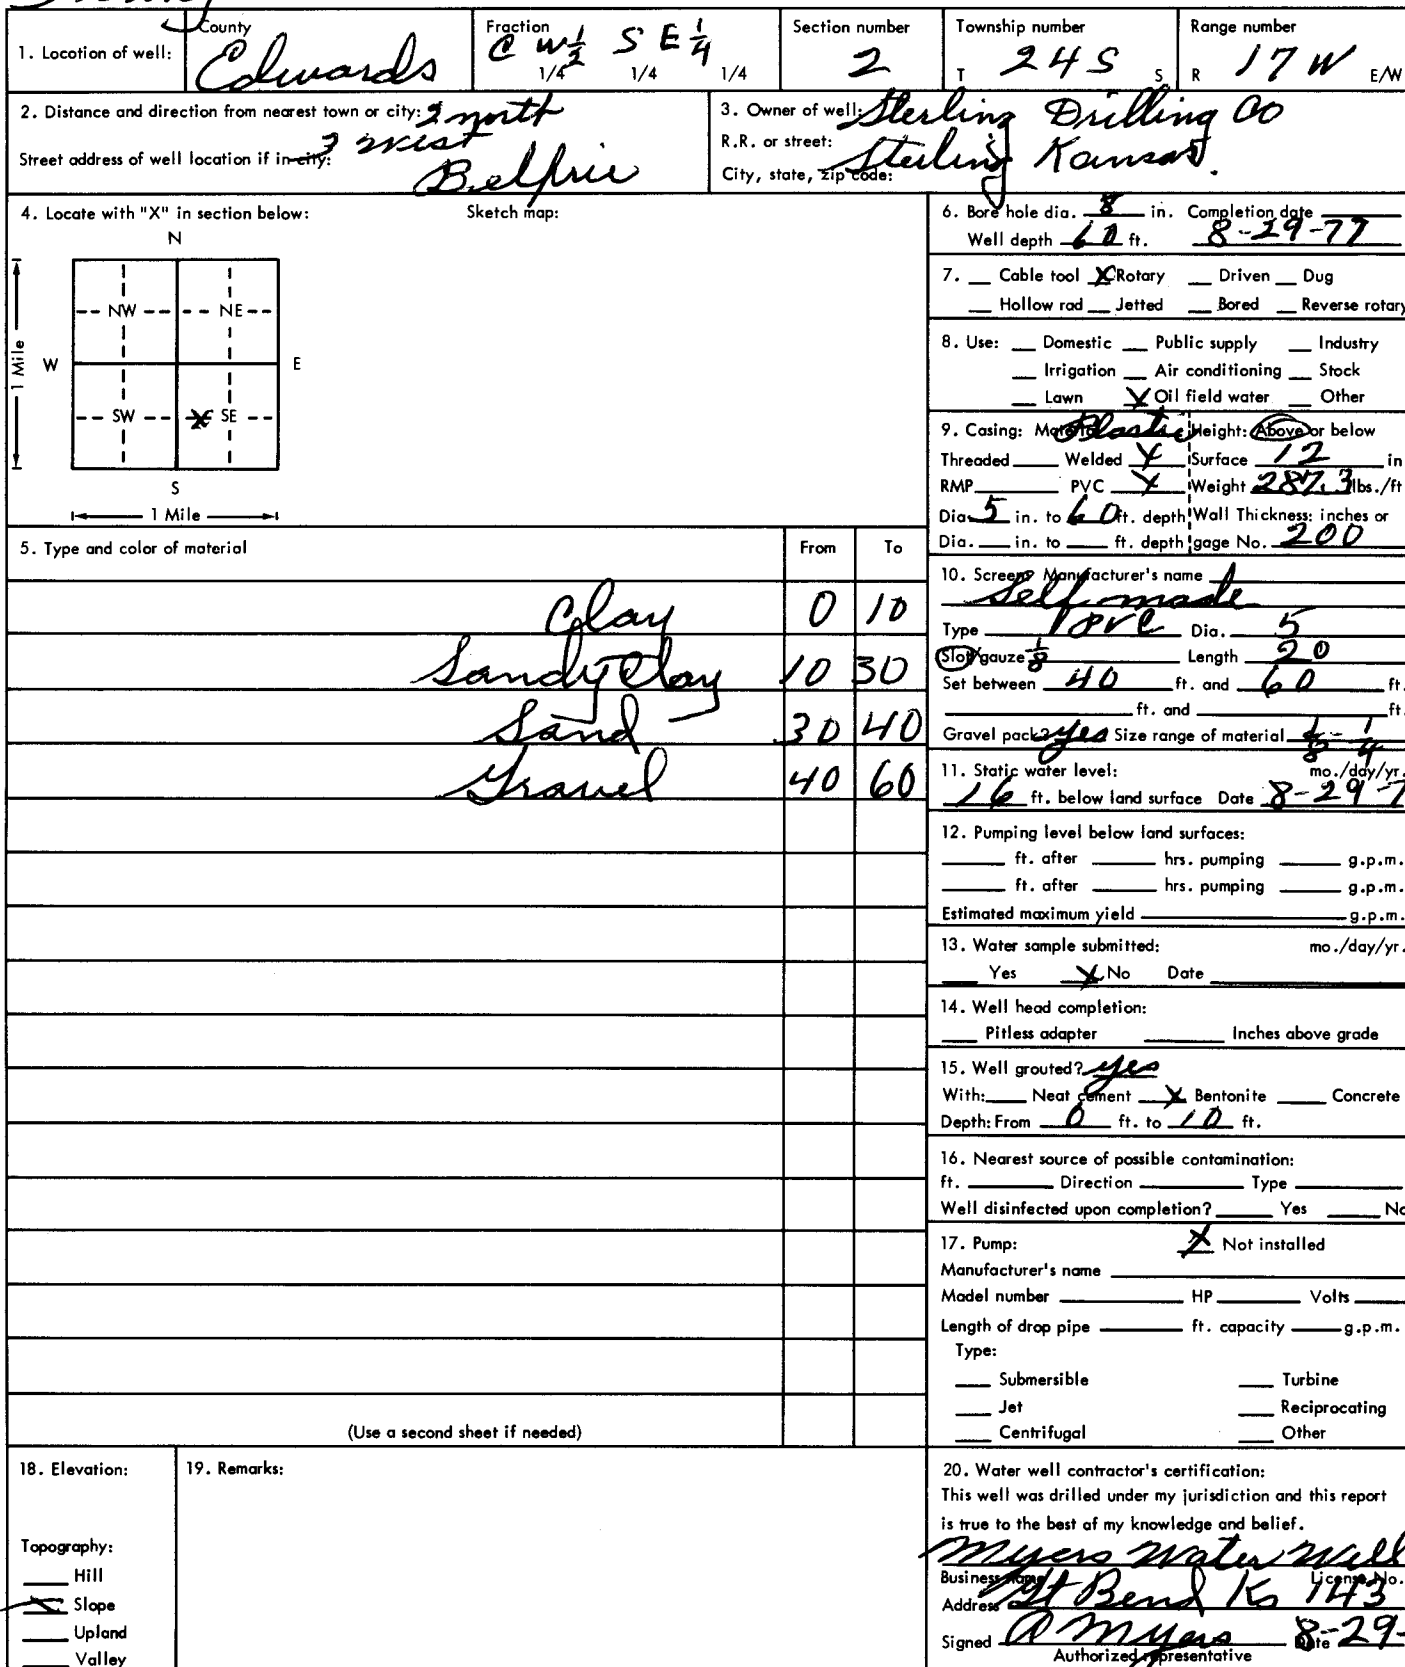 County
Fraction
Section number
Township number
Range number
1. Location of well:
Edwards
C W½ SE¼
1/4 1/4 1/4
2
T 24S S
R 17W E/W
2. Distance and direction from nearest town or city: 2 north
3 west
Street address of well location if in city:
Belpre
3. Owner of well: Sterling Drilling Co
R.R. or street:
City, state, zip code: Sterling Kansas.
4. Locate with "X" in section below:
Sketch map:
N
NW NE
W E
1 Mile
SW X SE
S
1 Mile
6. Bore hole dia. 8 in. Completion date
Well depth 60 ft. 8-29-77
7. Cable tool X Rotary Driven Dug
Hollow rod Jetted Bored Reverse rotary
8. Use: Domestic Public supply Industry
Irrigation Air conditioning Stock
Lawn X Oil field water Other
9. Casing: Material Plastic Height: Above or below
Threaded Welded X Surface 12 in
RMP PVC X Weight 287.3 lbs./ft
Dia. 5 in. to 60 ft. depth Wall Thickness: inches or
Dia. in. to ft. depth gage No. 200
5. Type and color of material From To
Clay 0 10
Sandy Clay 10 30
Sand 30 40
Gravel 40 60
(Use a second sheet if needed)
10. Screen: Manufacturer's name
Self made
Type PVC Dia. 5
Slot/gauze 1/8 Length 20
Set between 40 ft. and 60 ft.
ft. and ft.
Gravel pack? yes Size range of material 1/8 - 1/4
11. Static water level: mo./day/yr.
16 ft. below land surface Date 8-29-7
12. Pumping level below land surfaces:
ft. after hrs. pumping g.p.m.
ft. after hrs. pumping g.p.m.
Estimated maximum yield g.p.m.
13. Water sample submitted: mo./day/yr.
Yes X No Date
14. Well head completion:
Pitless adapter Inches above grade
15. Well grouted? yes
With: Neat cement X Bentonite Concrete
Depth: From 0 ft. to 10 ft.
16. Nearest source of possible contamination:
ft. Direction Type
Well disinfected upon completion? Yes No
17. Pump: X Not installed
Manufacturer's name
Model number HP Volts
Length of drop pipe ft. capacity g.p.m.
Type:
Submersible Turbine
Jet Reciprocating
Centrifugal Other
18. Elevation:
Topography:
Hill
X Slope
Upland
Valley
19. Remarks:
20. Water well contractor's certification:
This well was drilled under my jurisdiction and this report
is true to the best of my knowledge and belief.
Myers Water Well
Business name License No.
Address Gt Bend Ks 143
Signed A Myers Date 8-29-
Authorized representative